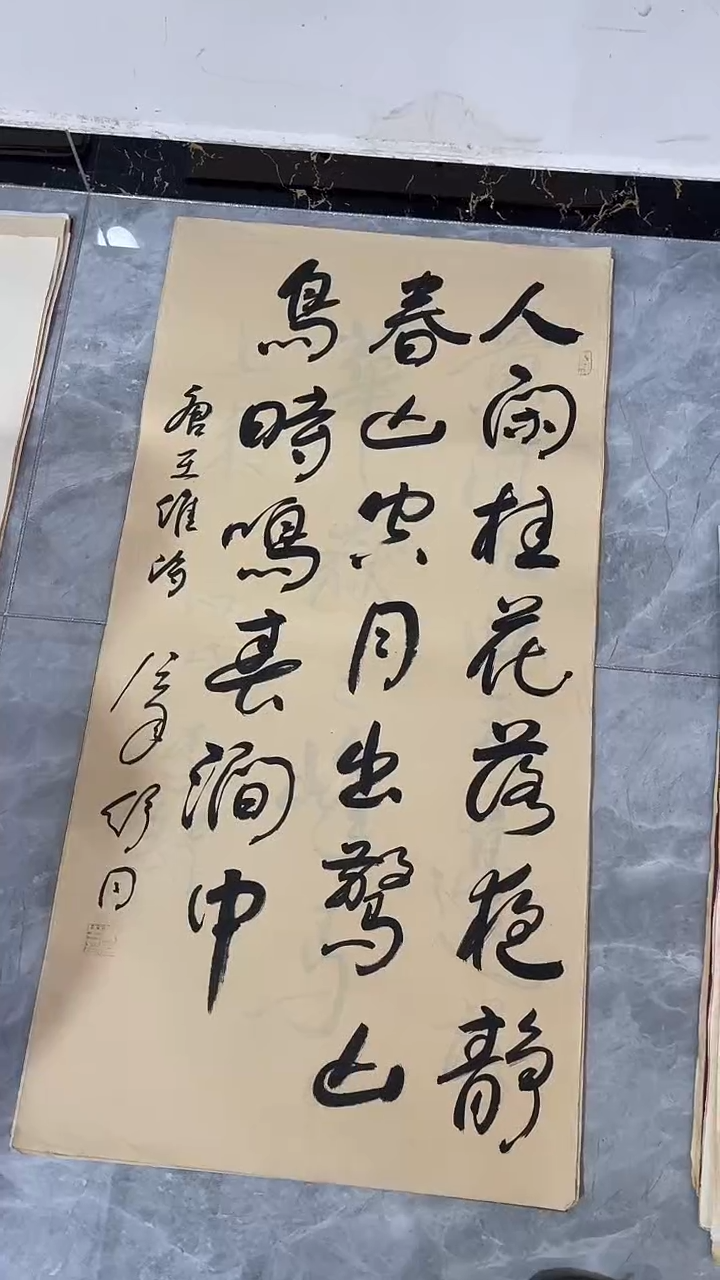 人閑桂花落夜靜
春山空月出驚山
鳥時鳴春澗中
唐王維詩
舒同